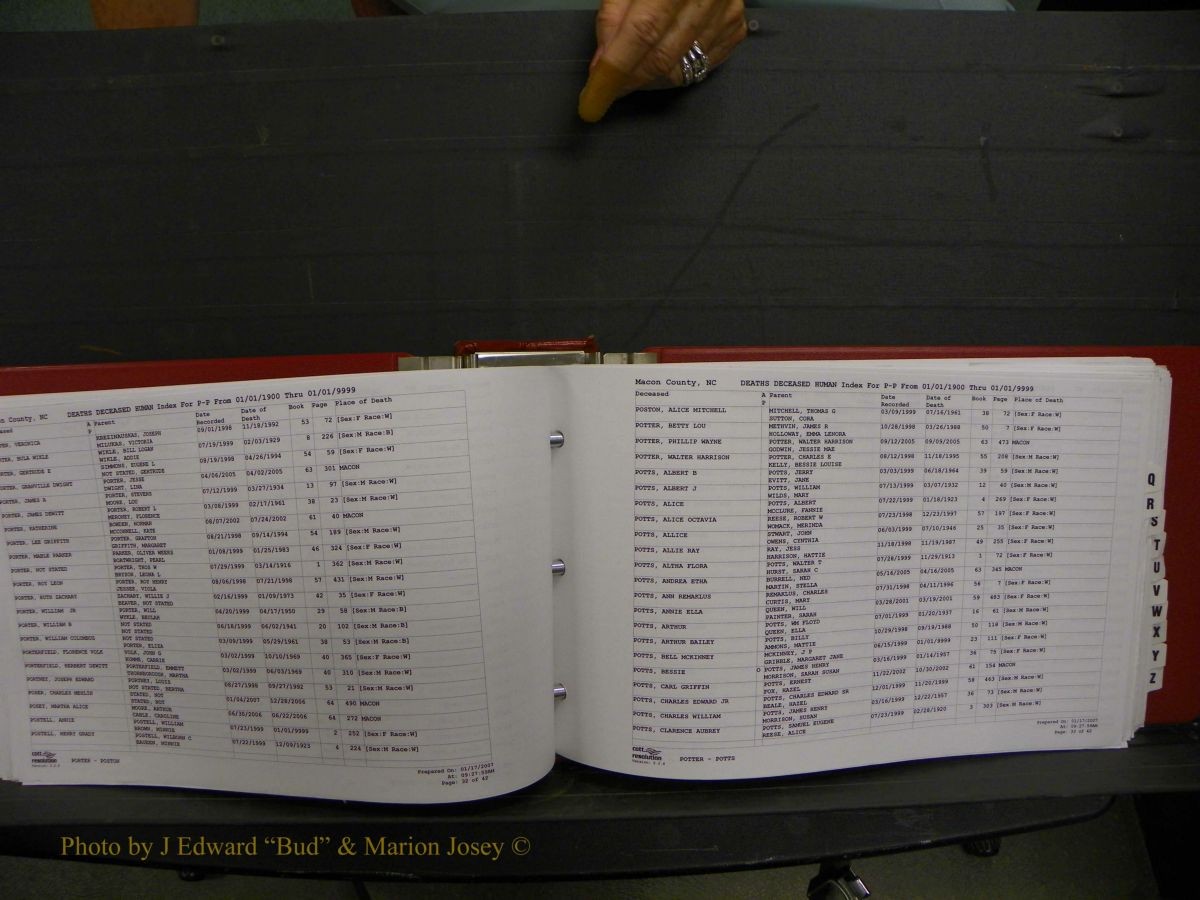 n County, NC DEATHS DECEASED HUMAN Index For P-P From 01/01/1900 Thru 01/01/9999
A Parent Date Recorded Date of Death Book Page Place of Death
P
KREZIWAUSKAS, JOSEPH 09/01/1998 11/18/1992 53 72 [Sex:F Race:W]
MILUKAS, VICTORIA
WIKLE, BILL LOGAN 07/19/1999 02/03/1929 8 226 [Sex:M Race:B]
WIKLE, ADDIE
SIMMONS, EUGENE L 54 59 [Sex:F Race:W]
NOT STATED, GERTRUDE
PORTER, JESSE 04/06/2005 04/02/2005 63 301 MACON
DWIGHT, LINA
PORTER, STEVERS 07/12/1999 03/27/1934 13 97 [Sex:M Race:W]
MOORE, LOU
PORTER, ROBERT L 03/08/1999 02/17/1961 38 23 [Sex:M Race:W]
MERONEY, FLORENCE
BOWDEN, NORMAN 08/07/2002 07/24/2002 61 40 MACON
PORTER, GRAFTON 08/21/1998 09/14/1994 54 189 [Sex:M Race:W]
GRIFFITH, MARGARET
PARKER, OLIVER WEEKS 01/08/1999 01/25/1983 46 324 [Sex:F Race:W]
PORTWRIGHT, PEARL
PORTER, THOS W 07/29/1999 03/14/1916 1 362 [Sex:M Race:W]
BRYSON, LEONA L
PORTER, ROY HENRY 08/06/1998 07/21/1998 57 431 [Sex:M Race:W]
JESSES, VIOLA
ZACHARY, WILLIE J 02/16/1999 01/09/1973 42 35 [Sex:F Race:W]
BEAVER, NOT STATED
PORTER, WILL 04/20/1999 04/17/1950 29 58 [Sex:M Race:B]
WYKLE, BEULAH
NOT STATED 06/18/1999 06/02/1941 20 102 [Sex:M Race:B]
NOT STATED
NOT STATED 03/09/1999 05/29/1961 38 53 [Sex:M Race:B]
PORTER, ELIZA
PORTERFIELD, FLORENCE VOLK VOLK, JOHN G 03/02/1999 10/10/1969 40 365 [Sex:F Race:W]
PORTERFIELD, HERBERT DEWITT PORTERFIELD, EMMETT 03/02/1999 06/03/1969 40 310 [Sex:M Race:W]
THORNBOROUGH, MARTHA
PORTHEY, JOSEPH EDWARD PORTHEY, LOUIS 08/27/1998 09/27/1992 53 21 [Sex:M Race:W]
NOT STATED, BERTHA
STATED, NOT 01/04/2007 12/28/2006 64 490 MACON
STATED, NOT
POSEY, MARTHA ALICE MOORE, ARTHUR 06/30/2006 06/22/2006 64 272 MACON
CABLE, CAROLINE
POSTELL, ANNIE POSTELL, WILLIAM 07/23/1999 01/01/9999 2 252 [Sex:F Race:W]
BROWN, MINNIE
POSTELL, HENRY GRADY POSTELL, WILBORN C 07/22/1999 12/09/1923 4 224 [Sex:M Race:W]
RAUREN, MINNIE
cott resolution PORTER - POSTON
Prepared On: 01/17/2007
At: 09:27:59AM
Page: 32 of 42
Macon County, NC DEATHS DECEASED HUMAN Index For P-P From 01/01/1900 Thru 01/01/9999
Deceased A Parent Date Recorded Date of Death Book Page Place of Death
P
POSTON, ALICE MITCHELL MITCHELL, THOMAS G 03/09/1999 07/16/1961 38 72 [Sex:F Race:W]
SUTTON, CORA
POTTER, BETTY LOU METHVIN, JAMES R 10/28/1998 03/26/1988 50 7 [Sex:F Race:W]
HOLLOWAY, EMMA LENORA
POTTER, PHILLIP WAYNE POTTER, WALTER HARRISON 09/12/2005 09/09/2005 63 473 MACON
GODWIN, JESSIE MAE
POTTER, WALTER HARRISON POTTER, CHARLES E 08/12/1998 11/18/1995 55 208 [Sex:M Race:W]
KELLY, BESSIE LOUISE
POTTS, ALBERT B POTTS, JERRY 03/03/1999 06/18/1964 39 59 [Sex:M Race:W]
EVITT, JANE
POTTS, ALBERT J POTTS, WILLIAM 07/13/1999 03/07/1932 12 60 [Sex:M Race:W]
WILDS, MARY
POTTS, ALICE POTTS, ALBERT 07/22/1999 01/18/1923 4 269 [Sex:F Race:W]
MCCLURE, FANNIE
POTTS, ALICE OCTAVIA REESE, ROBERT W 07/23/1998 12/23/1997 57 197 [Sex:F Race:W]
WOMACK, MERINDA
POTTS, ALLICE STWART, JOHN 06/03/1999 07/10/1946 25 35 [Sex:F Race:W]
OWENS, CYNTHIA
POTTS, ALLIE RAY RAY, JESS 11/18/1998 11/19/1987 49 255 [Sex:F Race:W]
HARRISON, HATTIE
POTTS, ALTHA FLORA POTTS, WALTER T 07/28/1999 11/29/1913 1 72 [Sex:F Race:W]
HURST, SARAH C
POTTS, ANDREA ETHA BURRELL, NED 05/16/2005 04/16/2005 63 345 MACON
MARTIN, STELLA
POTTS, ANN REMAKLUS REMAKLUS, CHARLES 07/31/1998 04/11/1996 56 7 [Sex:F Race:W]
CURTIS, MARY
POTTS, ANNIE ELLA QUEEN, WILL 03/28/2001 03/19/2001 59 603 [Sex:F Race:W]
PAINTER, SARAH
POTTS, ARTHUR POTTS, WM FLOYD 07/01/1999 01/20/1937 16 61 [Sex:M Race:W]
QUEEN, ELLA
POTTS, ARTHUR BAILEY POTTS, BILLY 10/29/1998 09/19/1988 50 119 [Sex:M Race:W]
AMMONS, MATTIE
POTTS, BELL MCKINNEY MCKINNEY, J P 06/15/1999 01/01/9999 23 111 [Sex:F Race:W]
GRIBBLE, MARGARET JANE
POTTS, BESSIE O POTTS, JAMES HENRY 03/16/1999 01/14/1957 36 75 [Sex:F Race:W]
MORRISON, SARAH SUSAN
POTTS, CARL GRIFFIN POTTS, ERNEST 11/22/2002 10/30/2002 61 154 MACON
FOX, HAZEL
POTTS, CHARLES EDWARD JR POTTS, CHARLES EDWARD SR 12/01/1999 11/20/1999 58 463 [Sex:M Race:W]
BEALE, HAZEL
POTTS, CHARLES WILLIAM POTTS, JAMES HENRY 03/16/1999 12/23/1957 36 73 [Sex:M Race:W]
MORRISON, SUSAN
POTTS, CLARENCE AUBREY POTTS, SAMUEL EUGENE 07/23/1999 02/28/1920 3 303 [Sex:M Race:W]
REESE, ALICE
cott resolution POTTER - POTTS
Prepared On: 01/17/2007
At: 09:27:59AM
Page: 33 of 42
Q
R
S
T
U
V
W
X
Y
Z
Photo by J Edward “Bud” & Marion Josey ©